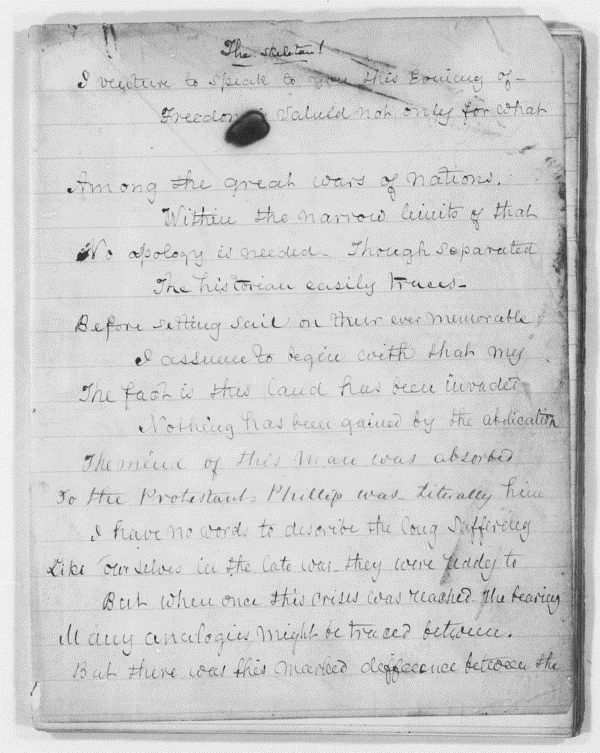 The Skeleton!
I venture to speak to you this Evening of-
Freedom is valued not only for what
Among the great wars of nations.
Within the narrow limits of that
No apology is needed- Though separated
The historian easily traces-
Before setting sail on their ever memorable
I assume to begin with that my
The fact is this land has been invaded
Nothing has been gained by the abdication
The mind of this Man was absorbed
To the Protestants Phillip was- Literally him
I have no words to describe the long suffering
Like ourselves in the late war- they were ready to
But when once this crises was reached the bearing
Many analogies might be traced between.
But there was this marked difference between the